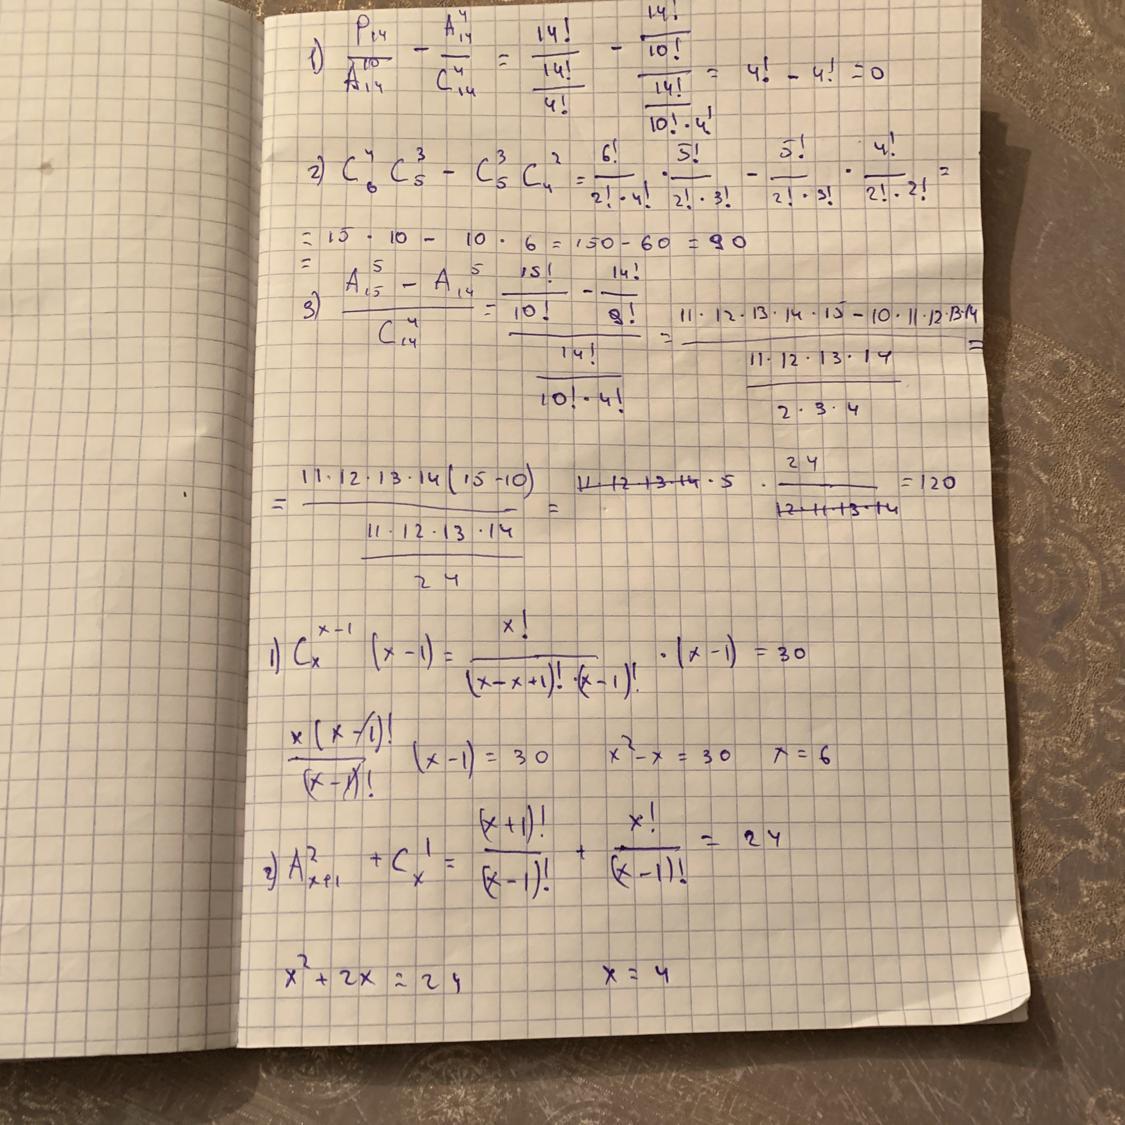 1) P₁₄/A₁₄¹⁰ − A₁₄⁴/C₁₄⁴ = 14!/(14!/4!) − (14!/10!)/(14!/(10!·4!)) = 4! − 4! = 0
2) C₆⁴ C₅³ − C₅³ C₄² = 6!/(2!·4!) · 5!/(2!·3!) − 5!/(2!·3!) · 4!/(2!·2!) =
= 15 · 10 − 10 · 6 = 150 − 60 = 90
=
3) (A₁₅⁵ − A₁₄⁵)/C₁₄⁴ = (15!/10! − 14!/9!)/(14!/(10!·4!)) = (11·12·13·14·15 − 10·11·12·13·14)/((11·12·13·14)/(2·3·4)) =
= (11·12·13·14(15−10))/((11·12·13·14)/24) = 11·12·13·14·5 · 24/(12·11·13·14) = 120
1) Cₓˣ⁻¹ (x−1) = x!/((x−x+1)!·(x−1)!) · (x−1) = 30
x(x−1)!/(x−1)! (x−1) = 30 x²−x = 30 x = 6
2) A²ₓ₊₁ + Cₓ¹ = (x+1)!/(x−1)! + x!/(x−1)! = 24
x² + 2x = 24 x = 4